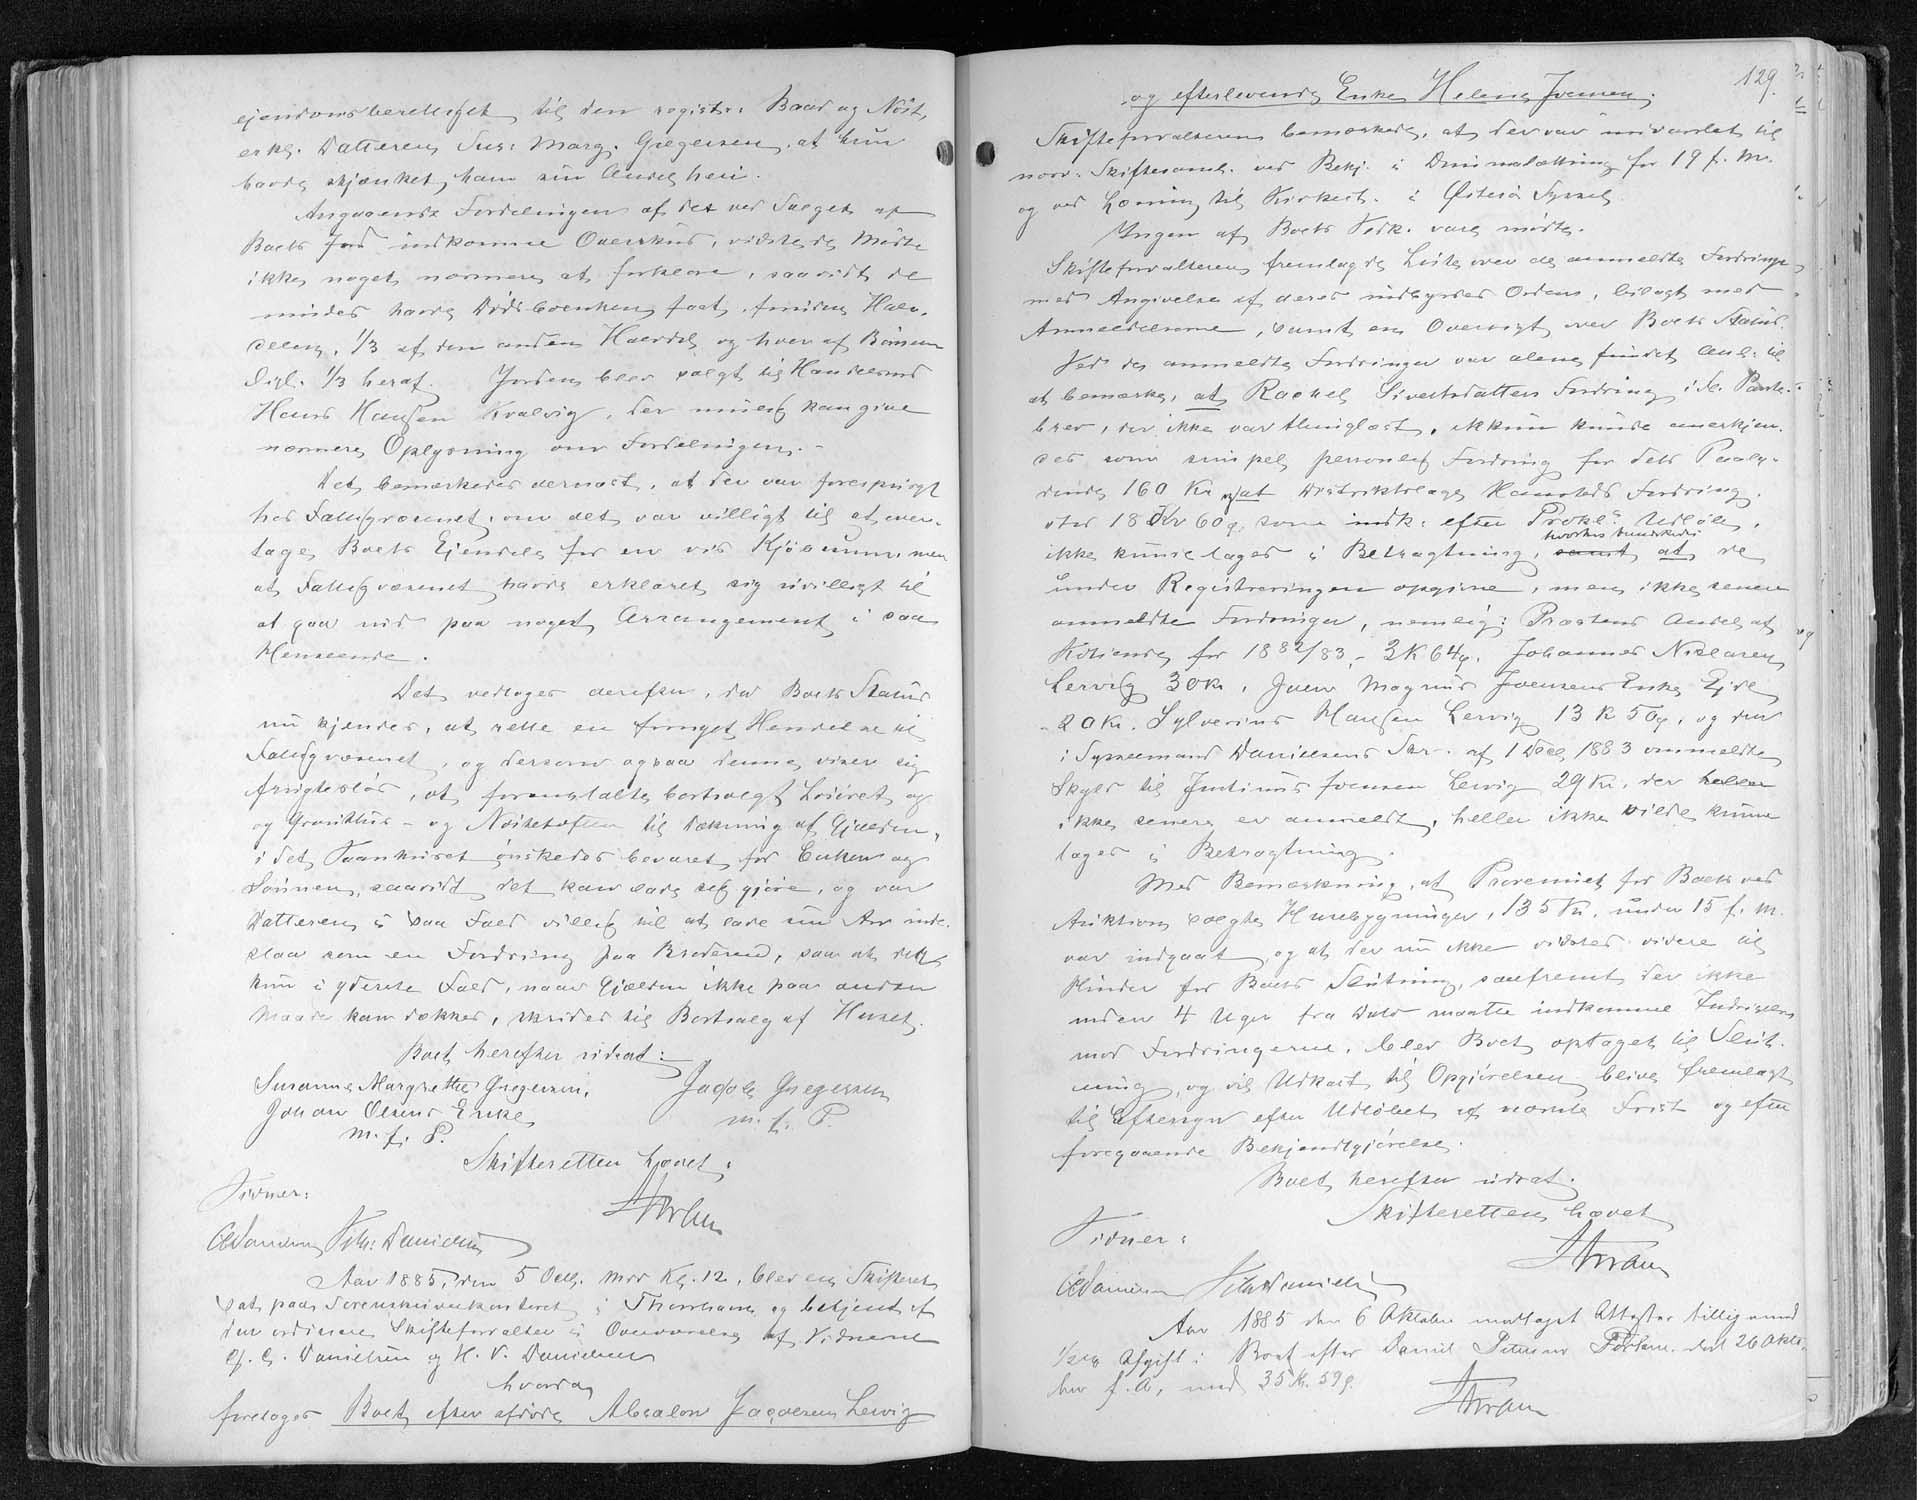 ejendomsberettiget til den registr. Baad og Nöst,
erkl. Datteren Sus: Marg. Gregersen, at hun
havde skjænket ham sin Andel heri.
Angaaende Fordelingen af det ved Salget af
Boets Jord indkomne Overskud, vidste de Mödte
ikke noget nærmere at forklare, saavidt de
mindes havde Dödsboenken faaet forinden Halv-
delen, 1/3 af den anden Halvdel og hver af Börnene
Ligl. 1/3 heraf. Jorden blev solgt til Handelsmd
Hans Hansen Kvalvig, der muligt kan give
nærmere Oplysning om Fordelingen.-
Det bemærkedes dernæst, at der var forespurgt
hos Fattigvæsenet, om det var villigt til at over-
tage Boets Ejendele for en vis Kjöbesum, men
at Fattigvæsenet havde erklæret sig uvilligt til
at gaa ind paa noget Arrangement i saa
Henseende.
Det vedtoges derefter, da Boets Status
nu kjendes, at rette en fornyet Henvendelse til
Fattigvæsenet, og dersom ogsaa denne viser sig
frugteslös, at foranstalte bortsolgt Löiret og
og Grouthus- og Nöstetoften til Dækning af Gjælden,
i det Vaanhuset önskedes bevaret for Enken og
Sönnen, saavidt det kan lade sig gjöre, og var
Datteren i saa Fald villig til at lade sin Arv inde-
staa som en Fordring paa Broderen, saa at der
kun i yderste Fald, naar Gjælden ikke paa anden
Maade kan dækkes, skrides til Bortsalg af Huset.
Boet herefter udsat:
Susanne Margrethe Gregersen, Jacob Gregersen
Johan Olsens Enke m. f. P.
m. f. P.
Skifteretten hævet.
Vidner:
Danielsen
Aar 1885, den 5 Octb. Mdd Kl. 12, blev en Skifteret
sat paa Sorenskriverkontoret i Thorshavn og betjent af
den ordinære Skifteforvalter i Overværelse af Vidnerne
C. Danielsen og H. V. Danielsen
hvorda
foretoges Boet efter afdöde Absalon Jacobsen Lervig
129.
og efterlevende Enke Helene Joensen.
Skifteforvalteren bemærkede, at der var indvarslet til
nærv. Skiftesaml. ved Bekj. i Dimmalætting for 19 f. M.
og ved Læsning til Kirkest. i Österö Syssel
Ingen af Boets Vedk. vare mödte.
Skifteforvalteren fremlagde Liste over de anmeldte Fordringer
med Angivelse af deres indbyrdes Orden, bilagt med
Anmeldelserne, samt en Oversigt over Boets Status.
Ved de anmeldte Fordringer var alene fundet Anl. til
at bemærke, at Rachel Sivertsdatters Fordring i fl. Pante-
brev, der ikke var thinglæst, ikkun kunde anerkjen-
des som simpel personlig Fordring for dets Paaly-
dende 160 Kr og at Distriktslæge Fordring,
stor 18 Kr 60 ö, som indk. efter Prokl.s Udlöb,
ikke kunde tages i Betragtning, samt at de
under Registreringen opgivne, men ikke senere
anmeldte Fordringer, nemlig: Præstens Andel af
for 1882/83 - 3 K 64 ö. Johannes Niclasen
Lervig 30 Kr, Joen Magnus Joensens Enke Ejde
20 Kr. Sylverius Hansen Lervig 13 K 50 ö, og den
i Sysselmand Danielsens Skr. af 1 Dec 1883 ommeldte
Skyld til Joensen Lervig 29 Kr, der heller
ikke senere er anmeldt, heller ikke vilde kunne
tages i Betragtning.
Med Bemærkning, at Provenuet for Boets ved
Auktion solgte Husebygninger, 135 Kr, under 15 f. M.
var indgaaet, og at der nu ikke vidstes videre til
Hinder for Boets Slutning, saafremt der ikke
inden 4 Uger fra Dato maatte indkomme Indsigelse
mod Fordringerne, blev Boet optaget til Slut-
ning, og vil Udkast til Opgjörelsen blive fremlagt
til Eftersyn efter Udlöbet af nævnte Frist og efter
foregaaende Bekjendtgjörelse.
Boet herefter udsat.
Skifteretten hævet
Vidner:
Danielsen
Aar 1885 den 6 Oktober modtaget Attester tilligemed
1/2 % Afgift i Boet efter Daniel Petersen Thorshavn, död 26 Okto-
ber f. A, med 35 Kr. 59 ö.